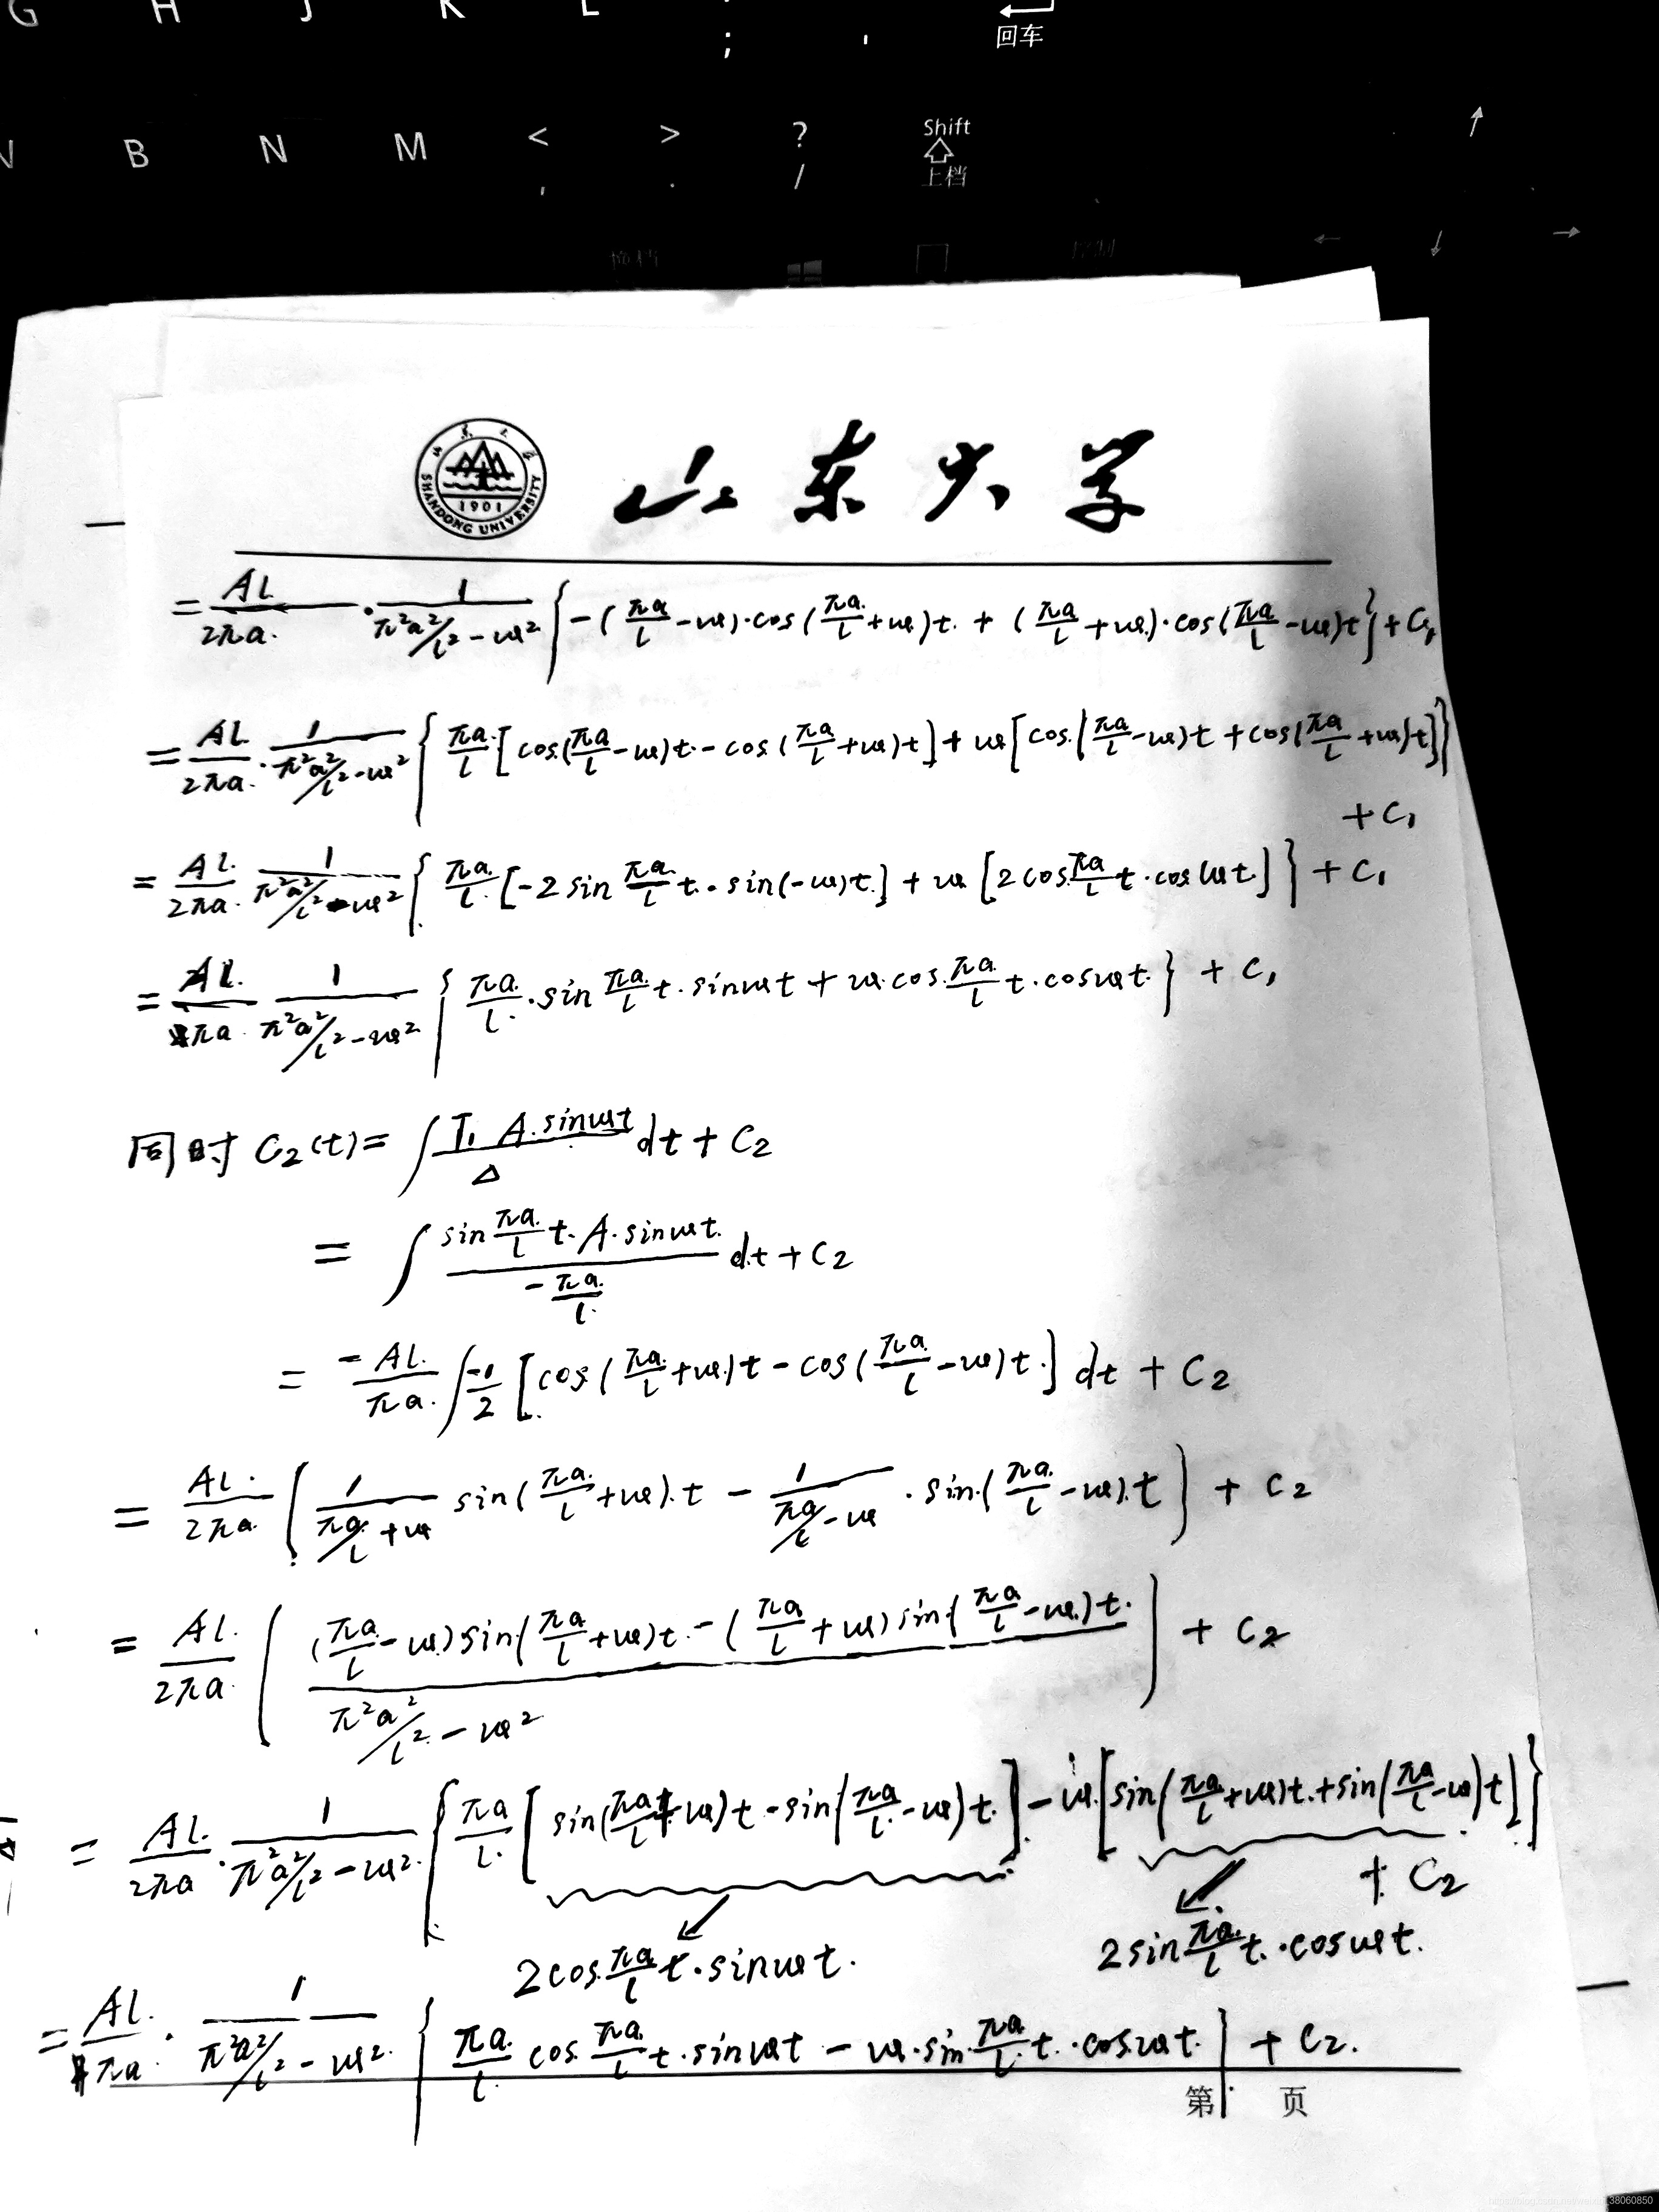 G H J K L ; ' 回车
V B N M < , > . ? / Shift 上档
SHANDONG UNIVERSITY 1901 山东大学
= AL/(2πa) · 1/(π²a²/l² − ω²) { −(πa/l − ω)·cos(πa/l + ω)t + (πa/l + ω)·cos(πa/l − ω)t } + C₁
= AL/(2πa) · 1/(π²a²/l² − ω²) { πa/l [cos(πa/l − ω)t − cos(πa/l + ω)t] + ω [cos(πa/l − ω)t + cos(πa/l + ω)t] }
+ C₁
= AL/(2πa) · 1/(π²a²/l² − ω²) { πa/l [−2 sin πa/l t · sin(−ω)t] + ω [2 cos πa/l t · cos ωt] } + C₁
= AL/(πa) · 1/(π²a²/l² − ω²) { πa/l · sin πa/l t · sin ωt + ω · cos πa/l t · cos ωt } + C₁
同时 C₂(t) = ∫ (T₁ A·sin ωt)/Δ dt + C₂
= ∫ (sin πa/l t · A · sin ωt)/(−πa/l) dt + C₂
= −AL/(πa) ∫ −1/2 [cos(πa/l + ω)t − cos(πa/l − ω)t] dt + C₂
= AL/(2πa) ( 1/(πa/l + ω) sin(πa/l + ω)·t − 1/(πa/l − ω) · sin(πa/l − ω)·t ) + C₂
= AL/(2πa) ( ((πa/l − ω) sin(πa/l + ω)t − (πa/l + ω) sin(πa/l − ω)t)/(π²a²/l² − ω²) ) + C₂
= AL/(2πa) · 1/(π²a²/l² − ω²) { πa/l [sin(πa/l + ω)t − sin(πa/l − ω)t] − ω [sin(πa/l + ω)t + sin(πa/l − ω)t] }
+ C₂
2cos πa/l t · sin ωt. 2sin πa/l t · cos ωt.
= AL/(πa) · 1/(π²a²/l² − ω²) { πa/l cos πa/l t · sin ωt − ω · sin πa/l t · cos ωt } + C₂.
第 页
38060850